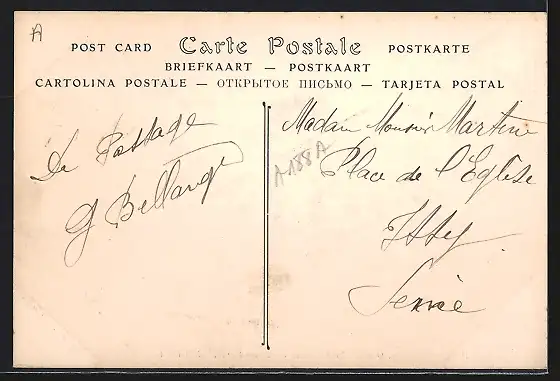 A
POST CARD Carte Postale POSTKARTE
BRIEFKAART — POSTKAART
CARTOLINA POSTALE — ОТКРЫТОЕ ПИСЬМО — TARJETA POSTAL
De Passage
G Bellange
A188A
Madam Monsier Martin
Place de l'Eglise
Issy